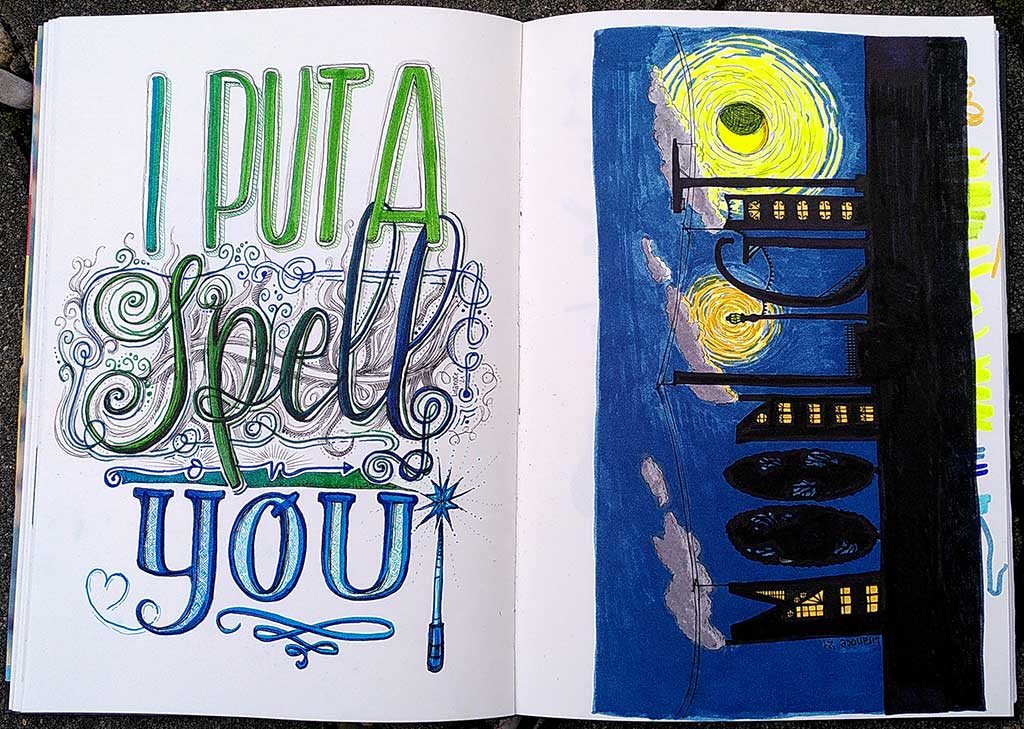 I PUT A
Spell
on
you
MOONLIGHT